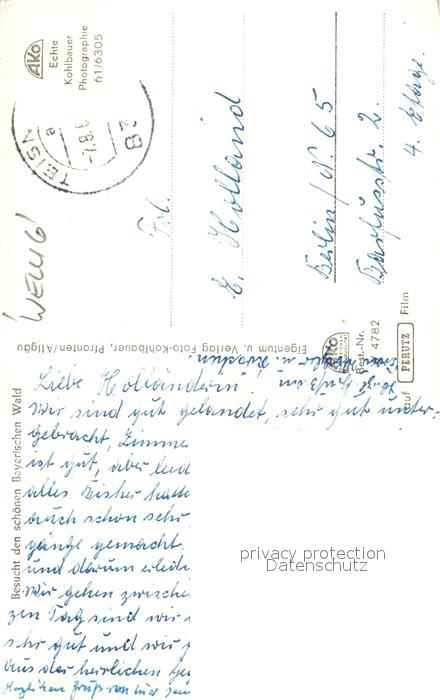 AKO
Echte
Kohlbauer
Photographie
61/6305
TEISN
a
83
Frl.
E. Holland
Berlin/N. 65
Barfusstr. 2.
4. Etage.
WENIG
Eigentum u. Verlag Foto-Kohlbauer, Pfronten/Allgäu
AKO
Best.-Nr.
P 4782
auf PERUTZ Film
Besucht den schönen Bayerischen Wald
Liebe Holländerin!
Wir sind gut gelandet, sehr gut unter-
gebracht, Zimme
ist gut, aber leid
alles bisher hatte
auch schon sehr
gänge gemacht
und darum erledi
Wir gehen zwische
zen Tag sind wir
sehr gut und wir
aus der herrlichen Geg
Herzlichen Gruß von hier
privacy protection
Datenschutz